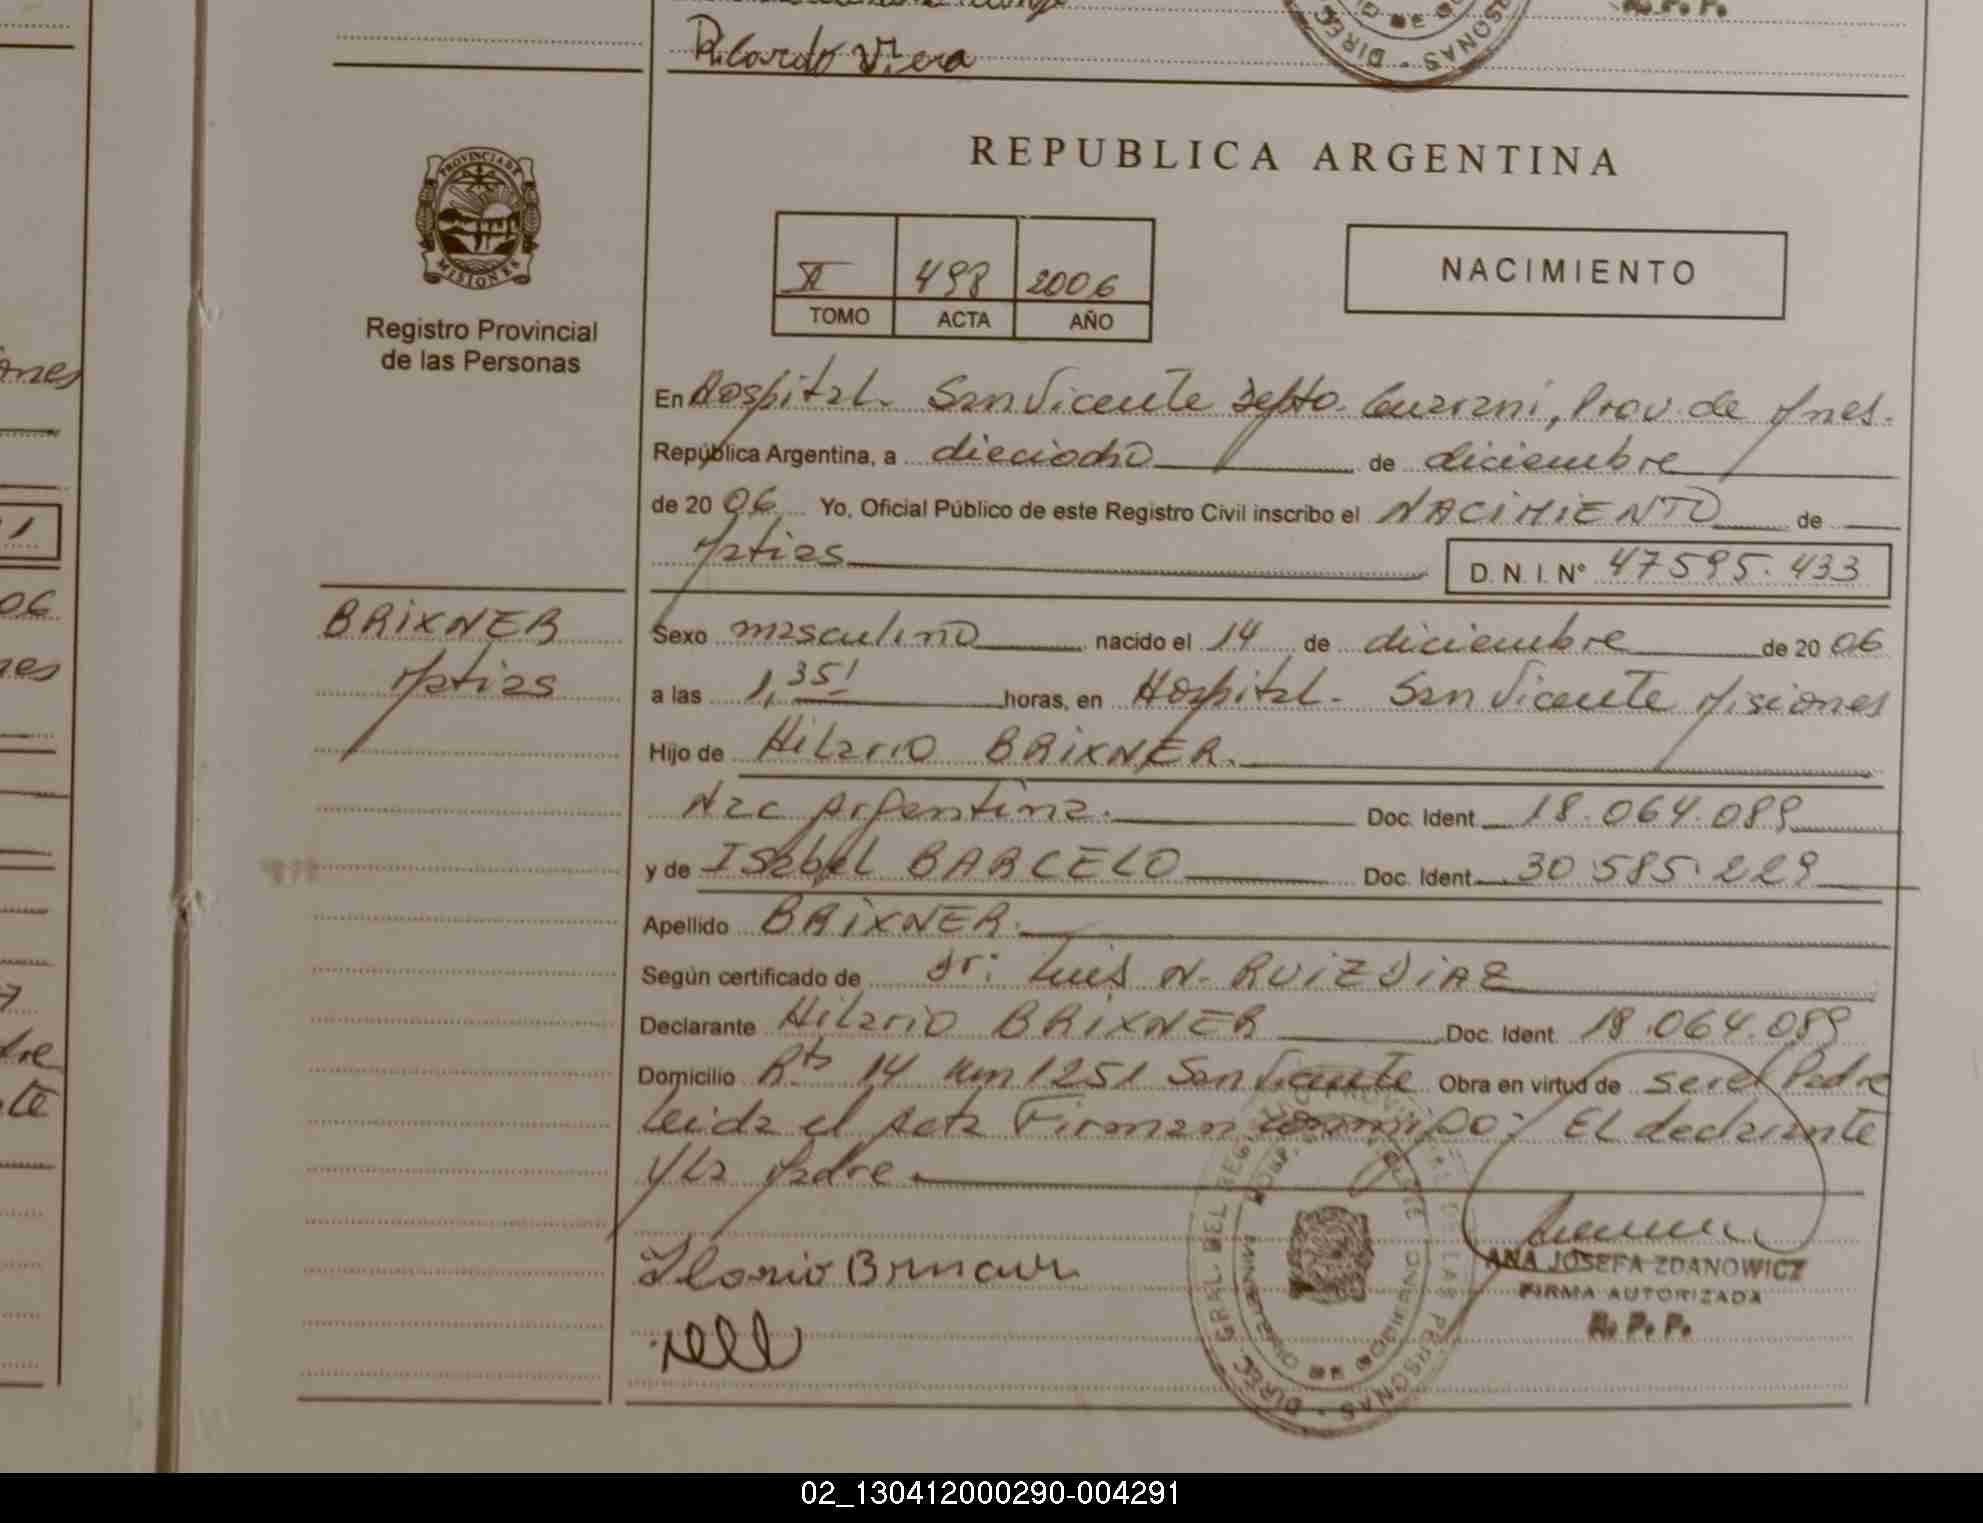 Ricardo Viera
R. P. P.
PROVINCIA DE
MISIONES
Registro Provincial
de las Personas
REPUBLICA ARGENTINA
II 498 2006
TOMO ACTA AÑO
NACIMIENTO
En Hospital. San Vicente Depto. Guarani, Prov. de Mnes.
República Argentina, a dieciocho de diciembre
de 2006 Yo, Oficial Público de este Registro Civil inscribo el NACIMIENTO de
Matias D. N. I. Nº 47595.433
BRIXNER
Matias
Sexo masculino nacido el 14 de diciembre de 2006
a las 1,35' horas, en Hospital. San Vicente Misiones
Hijo de Hilario BRIXNER.
Nac Argentina. Doc. Ident 18.064.089
y de Isabel BARCELO Doc. Ident 30 585.229
Apellido BRIXNER.
Según certificado de Dr: Luis N. RUIZ DIAZ
Declarante Hilario BRIXNER Doc. Ident. 18.064.089
Domicilio Rta 14 Km 1251 San Vicente Obra en virtud de ser el Padre
Leida el Acta Firman conmigo: El declarante
y La Madre
ANA JOSEFA ZDANOWICZ
FIRMA AUTORIZADA
R. P. P.
02_130412000290-004291